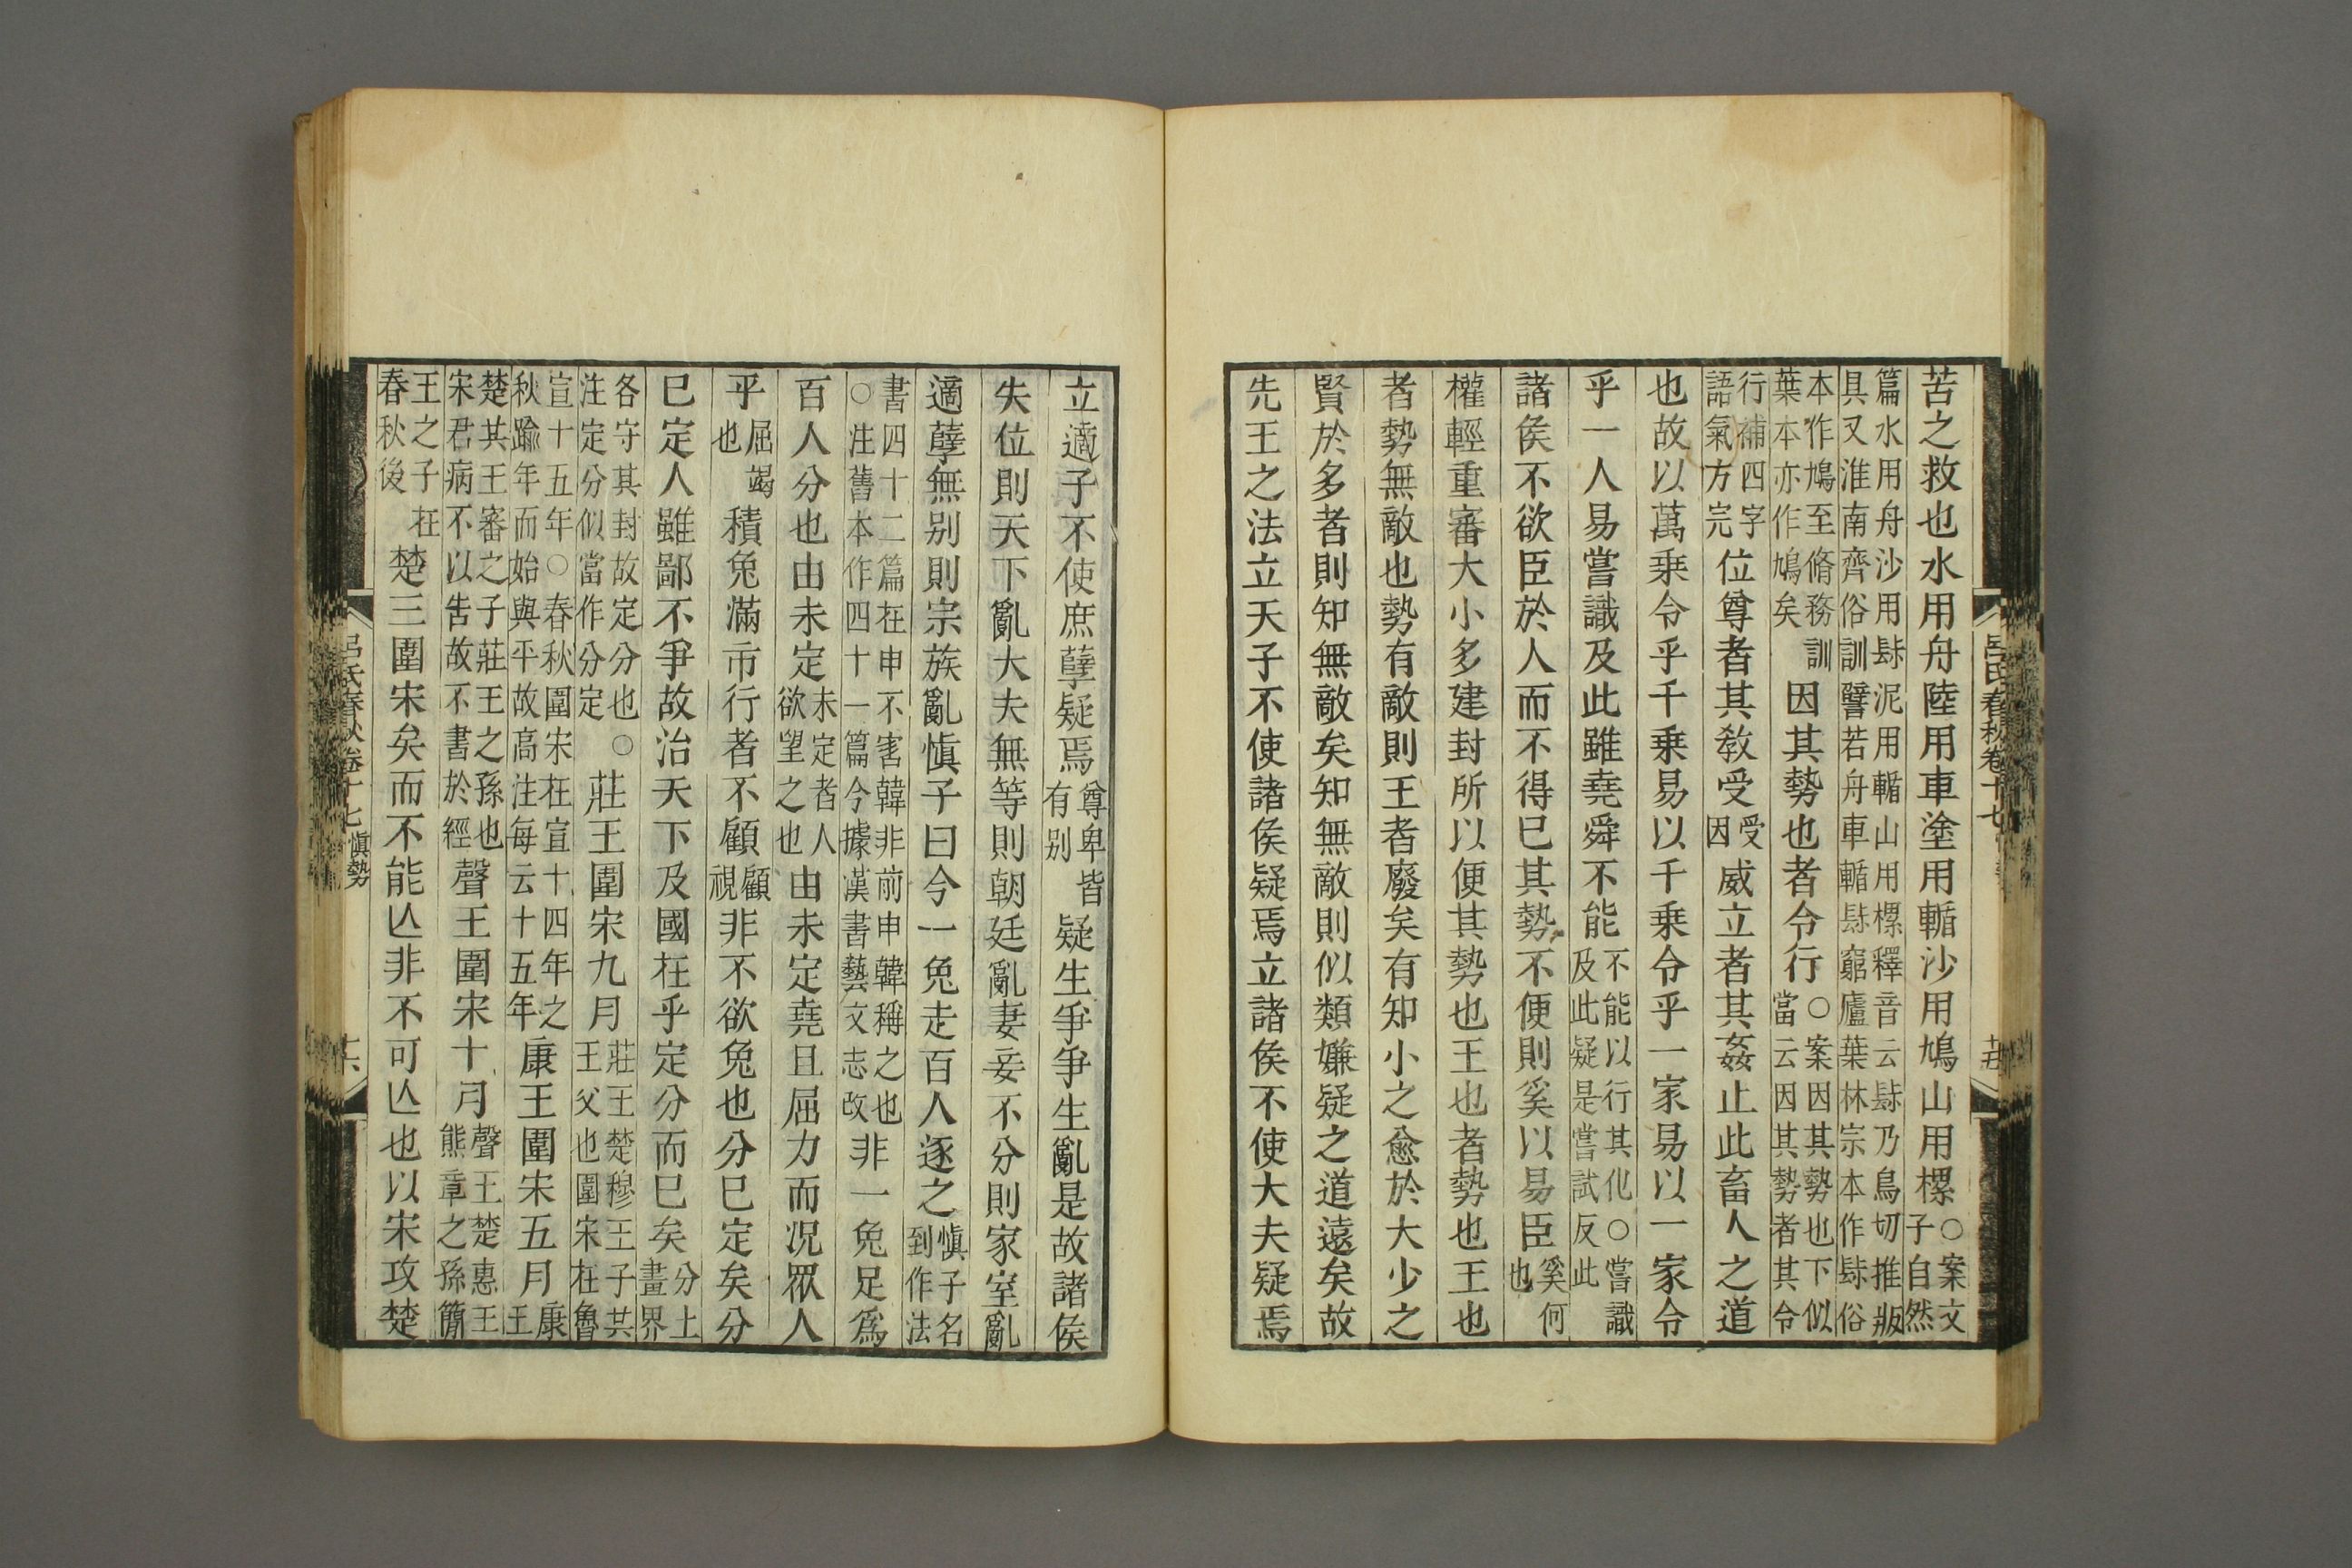 苦之救也水用舟陸用車塗用輴沙用鳩山用樏○案文子自然
篇水用舟沙用泥用輴山用樏釋音云乃鳥切推版
具又淮南齊俗訓譬若舟車輴窮廬葉林宗本作俗
本作鳩至脩務訓葉本亦作鳩矣因其勢也者令行○案因其勢也下似當云因其勢者其令
行補四字語氣方完位尊者其敎受受因威立者其姦止此畜人之道
也故以萬乗令乎千乗易以千乗令乎一家易以一家令
乎一人易嘗識及此雖堯舜不能不能以行其化○嘗識及此疑是嘗試反此
諸侯不欲臣於人而不得已其勢不便則奚以易臣奚何也
權輕重審大小多建封所以便其勢也王也者勢也王也
者勢無敵也勢有敵則王者廢矣有知小之愈於大少之
賢於多者則知無敵矣知無敵則似類嫌疑之道遠矣故
先王之法立天子不使諸侯疑焉立諸侯不使大夫疑焉
呂氏春秋卷十七
立適子不使庶孽疑焉尊卑皆有别疑生爭爭生亂是故諸侯
失位則天下亂大夫無等則朝廷亂妻妾不分則家室亂
適孽無别則宗族亂愼子曰今一兔走百人逐之愼子名到作法
書四十二篇在申不害韓非前申韓稱之也○注舊本作四十一篇今據漢書藝文志改非一兔足爲
百人分也由未定未定者人欲望之也由未定堯且屈力而況眾人
乎屈竭也積兔滿市行者不顧顧視非不欲兔也分已定矣分
已定人雖鄙不爭故治天下及國在乎定分而已矣分土畫界
各守其封故定分也○注定分似當作分定莊王圍宋九月莊王楚穆王子其王父也圍宋在魯
宣十五年○春秋圍宋在宣十四年之秋踰年而始與平故高注每云十五年康王圍宋五月康王
楚其王審之子莊王之孫也宋君病不以告故不書於經聲王圍宋十月聲王楚惠王熊章之孫簡
王之子在春秋後楚三圍宋矣而不能亾非不可亾也以宋攻楚
呂氏春秋卷十七愼勢
十六